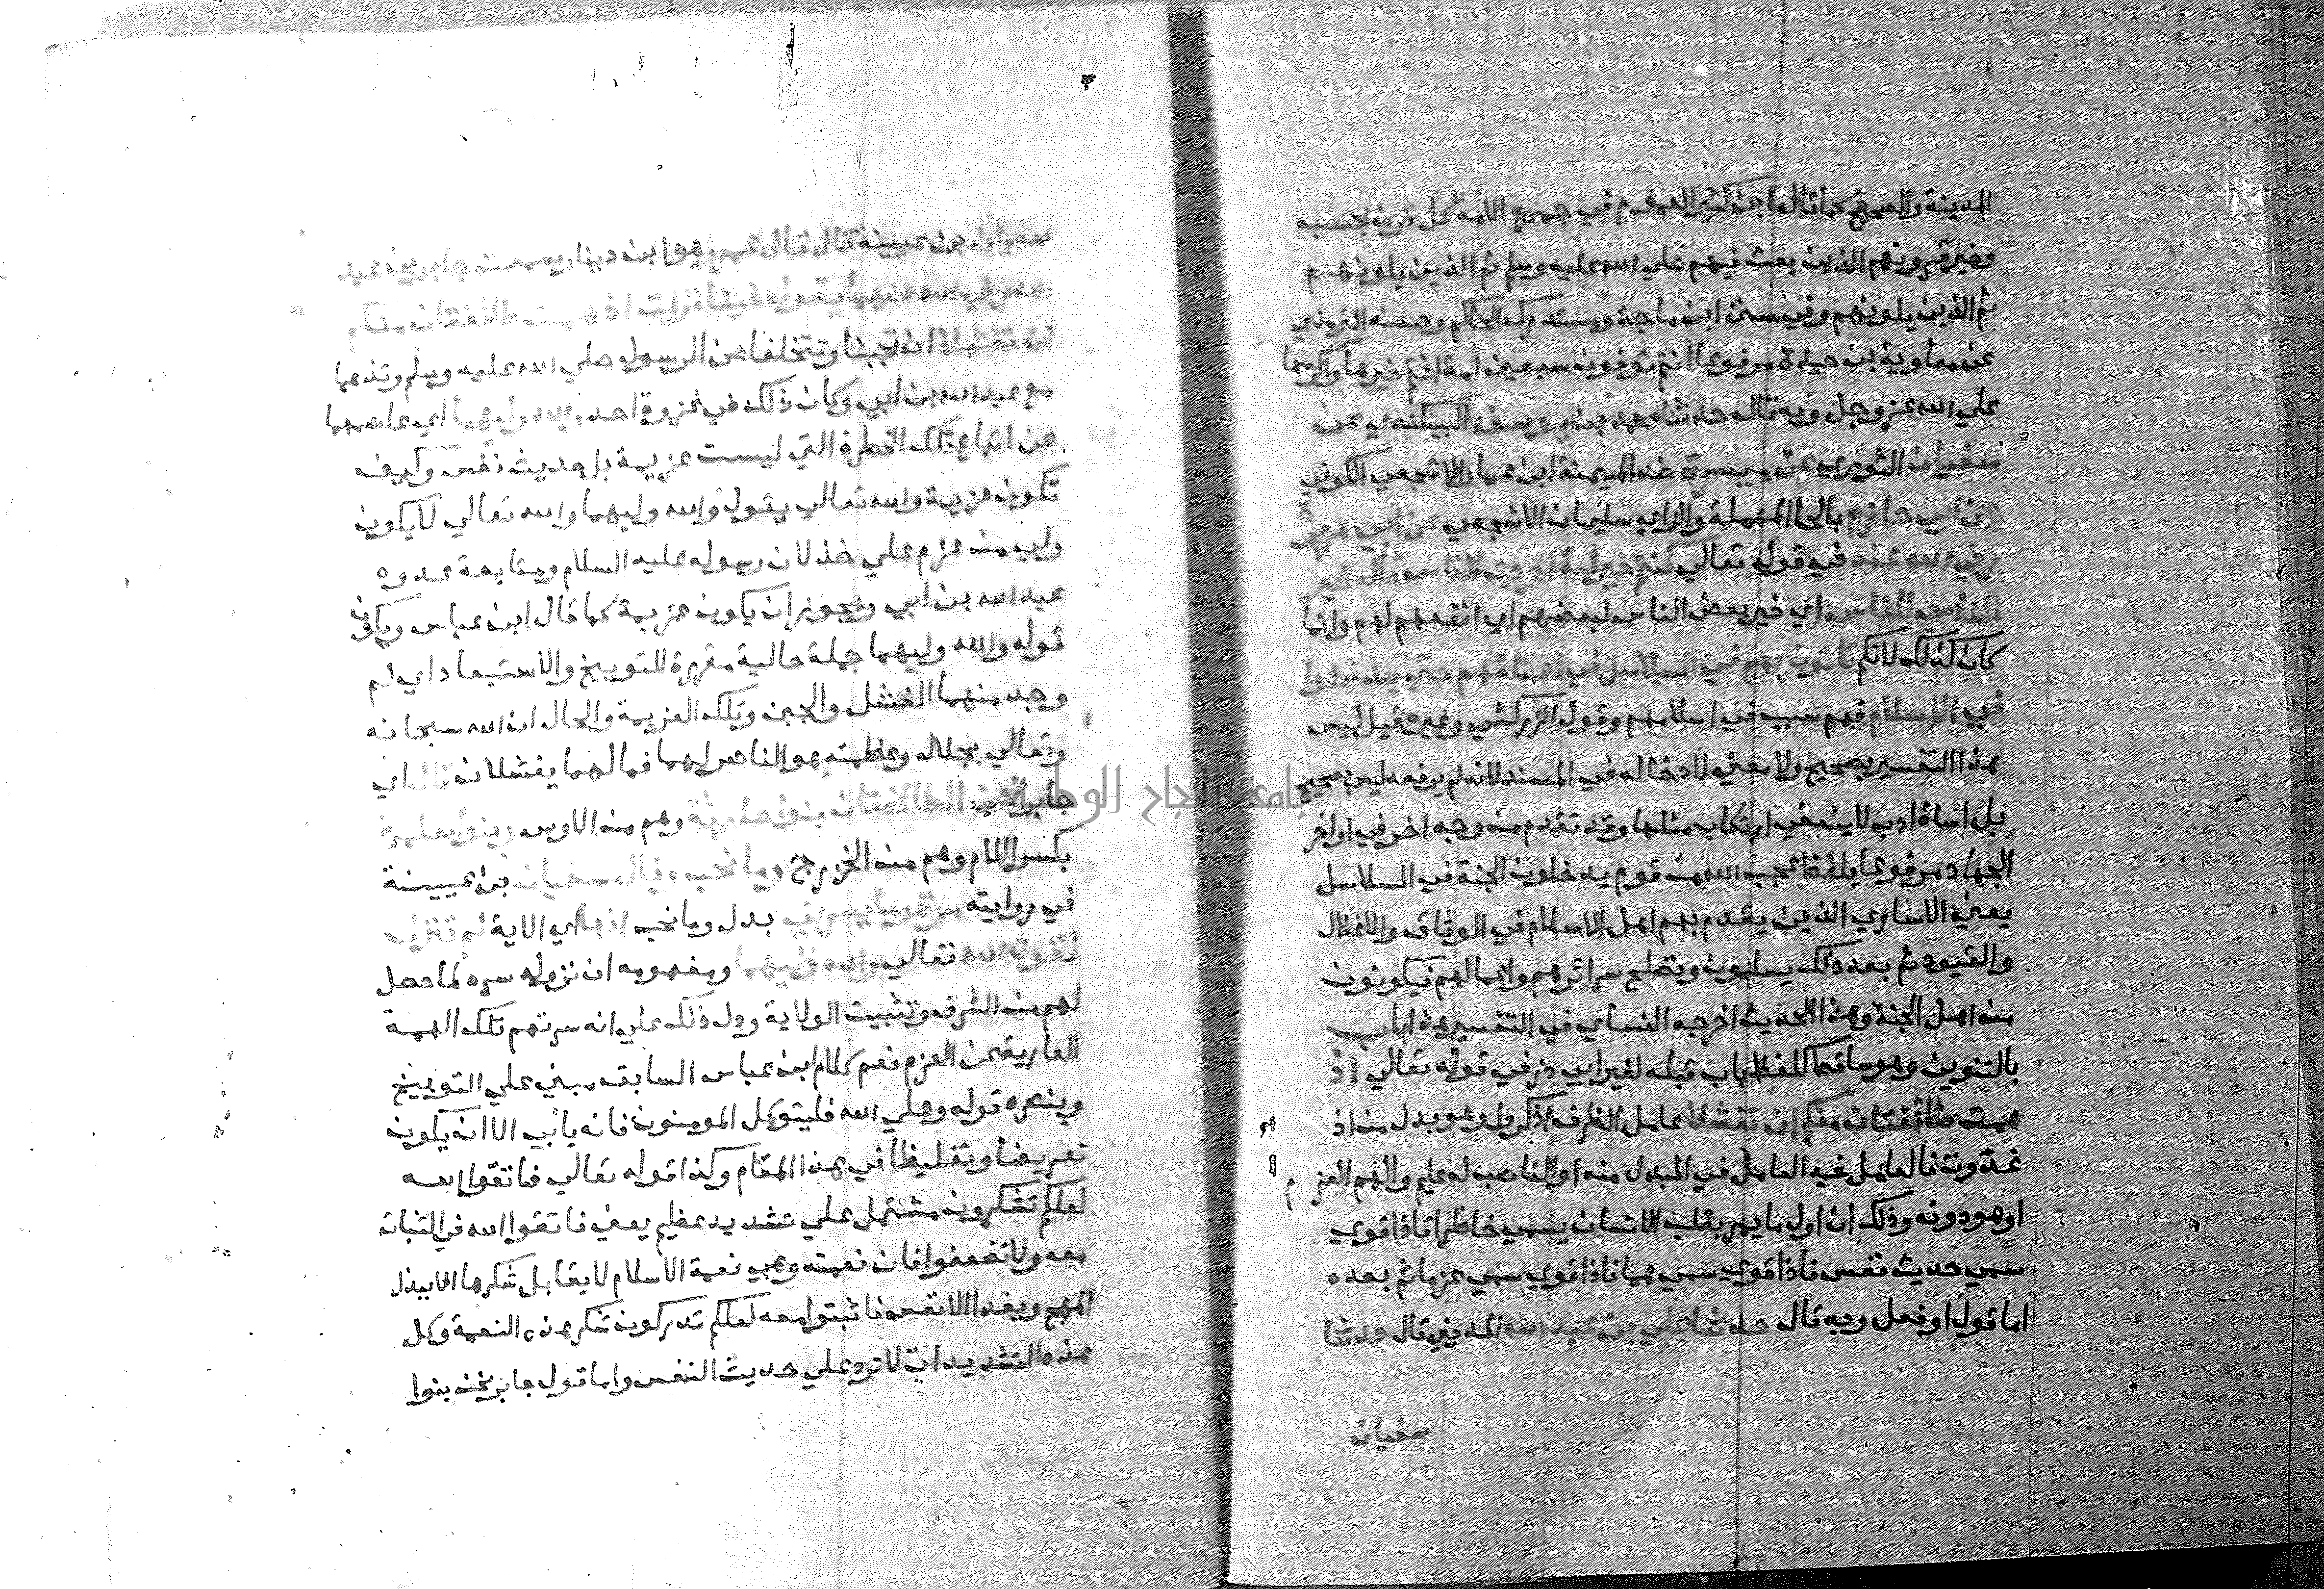 المدينة والصحيح كما قاله ابن كثير العموم في جميع الامة كل قرن بحسبه
وخير قرونهم الذين بعث فيهم صلي الله عليه وسلم ثم الذين يلونهم
ثم الذين يلونهم وفي سنن ابن ماجة ومستدرك الحاكم وحسنه الترمذي
عن معاوية بن حيدة مرفوعا انتم توفون سبعين امة انتم خيرها واكرمها
علي الله عز وجل وبه قال حدثنا محمد بن يوسف البيكندي عن
سفيان الثوري عن ميسرة ضد الميمنة ابن عمار الاشجعي الكوفي
عن ابي حازم بالحا المهملة والزاي سليمان الاشجعي عن ابي هريرة
رضي الله عنه في قوله تعالي كنتم خير امة اخرجت للناس قال خير
الناس للناس اي خير بعض الناس لبعضهم اي انفعهم لهم وانما
كان كذلك لانكم تاتون بهم في السلاسل في اعناقهم حتي يدخلوا
في الاسلام فهم سبب في اسلامهم وقول الزركشي وغيره قيل ليس
هذا التفسير بصحيح ولا معني لادخاله في المسند لانه لم يرفعه ليس بصحيح
بل اساة ادب لا ينبغي ارتكاب مثلها وقد تقدم من وجه اخر في اواخر
الجهاد مرفوعا بلفظ عجب الله من قوم يدخلون الجنة في السلاسل
يعني الاساري الذين يقدم بهم اهل الاسلام في الوثاق والاغلال
والقيود ثم بعد ذلك يسلمون وتصلح سرائرهم واعمالهم فيكونون
من اهل الجنة وهذا الحديث اخرجه النسأي في التفسير هذا باب
بالتنوين وهو ساقط كلفظ باب قبله لغير ابي ذر في قوله تعالي اذ
همت طائفتان منكم ان تفشلا عامل الظرف اذكر او هو بدل من اذ
غدوت فالعامل فيه العامل في المبدل منه او الناصب له عليم والهم العزم
او هو دونه وذلك ان اول ما يمر بقلب الانسان يسمي خاطرا فاذا قوي
سمي حديث نفس فاذا قوي سمي هما فاذا قوي سمي عزما ثم بعده
اما قول او فعل وبه قال حدثنا علي بن عبد الله المديني قال حدثنا
سفيان
سفيان بن عيينة قال قال عمرو هو ابن دينار سمعت جابر بن عبد
الله رضي الله عنهما يقول فينا نزلت اذ همت طائفتان منكم
ان تفشلا ان تجبنا وتتخلفا عن الرسول صلي الله عليه وسلم وتذهبا
مع عبد الله بن ابي وكان ذلك في غزوة احد والله وليهما اي عاصمهما
عن اتباع تلك الخطرة التي ليست عزيمة بل حديث نفس وكيف
تكون عزيمة والله تعالي يقول والله وليهما والله تعالي لا يكون
ولي من عزم علي خذلان رسوله عليه السلام ومتابعة عدوه
عبد الله بن ابي ويجوز ان يكون عزيمة كما قال ابن عباس ويكون
قوله والله وليهما جملة حالية مقررة للتوبيخ والاستبعاد اي لم
وجد منهما الفشل والجبن وتلك العزيمة والحال ان الله سبحانه
وتعالي بجلاله وعظمته هو الناصر لهما فما لهما يفشلان قال اي
جابر نحن الطائفتان بنوا حارثة وهم من الاوس وبنوا سلمة
بكسر اللام وهم من الخزرج وما نحب وقال سفيان بن عيينة
في روايته مرة وما يسرني بدل وما نحب انها اي الاية لم تنزل
لقول الله تعالي والله وليهما ومفهومه ان نزوله سره لما حصل
لهم من الشرف وتثبيت الولاية ودل ذلك علي انه سرتهم تلك الهمة
العارية عن العزم نعم كلام ابن عباس السابق مبني علي التوبيخ
وينصره قوله وعلي الله فليتوكل المومنون فانه يابي الا ان يكون
تعريضا وتغليظا في هذا المقام وكذا قوله تعالي فاتقوا الله
لعلكم تشكرون مشتمل علي تشديد عظيم يعني فاتقوا الله في الثبات
معه ولا تضعفوا فان نعمته وهي نعمة الاسلام لا يقابل شكرها الا ببذل
المهج وبفدا الانفس فاثبتوا معه لعلكم تدركون شكر هذه النعمة وكل
هذه التشديدات لا ترد علي حديث النفس واما قول جابر نحن بنوا
جامعة النجاح الوطنية